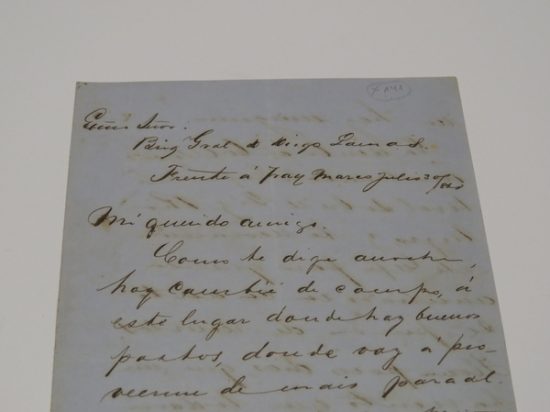 Exmo Señor:
Brig Gral D Diego Lamas.
Frente á Fray Marcos Julio
Mi querido amigo.
Como te dige anoche,
hoy cambié de campo, á
este lugar donde hay buenos
pastos, donde voy á pro-
veerme de mais para al